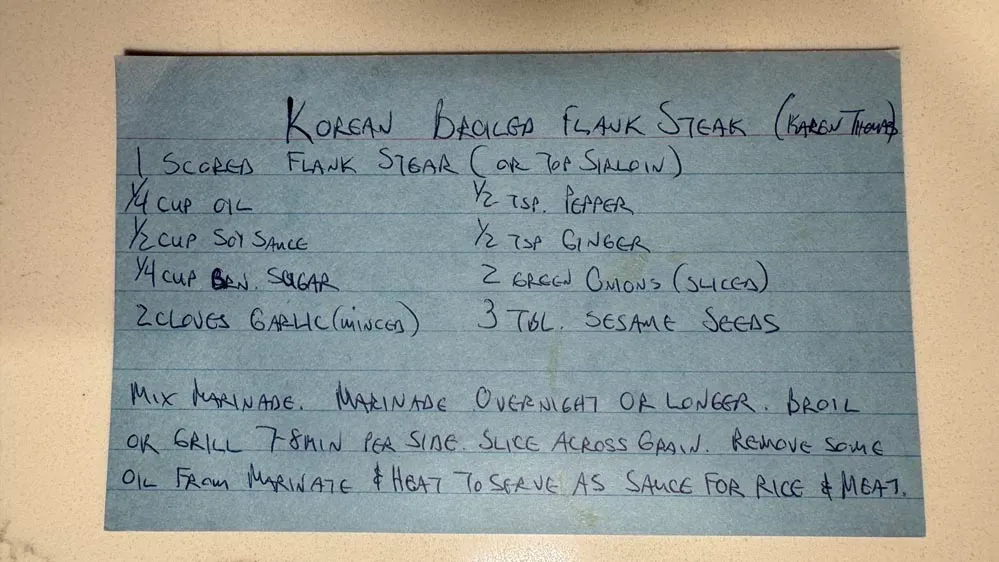 KOREAN BROILED FLANK STEAK (KAREN THOMAS)
1 SCORED FLANK STEAK (OR TOP SIRLOIN)
1/4 CUP OIL 1/2 TSP. PEPPER
1/2 CUP SOY SAUCE 1/2 TSP GINGER
1/4 CUP BRN. SUGAR 2 GREEN ONIONS (SLICED)
2 CLOVES GARLIC (MINCED) 3 TBL. SESAME SEEDS
MIX MARINADE. MARINADE OVERNIGHT OR LONGER. BROIL
OR GRILL 7-8 MIN PER SIDE. SLICE ACROSS GRAIN. REMOVE SOME
OIL FROM MARINATE & HEAT TO SERVE AS SAUCE FOR RICE & MEAT.